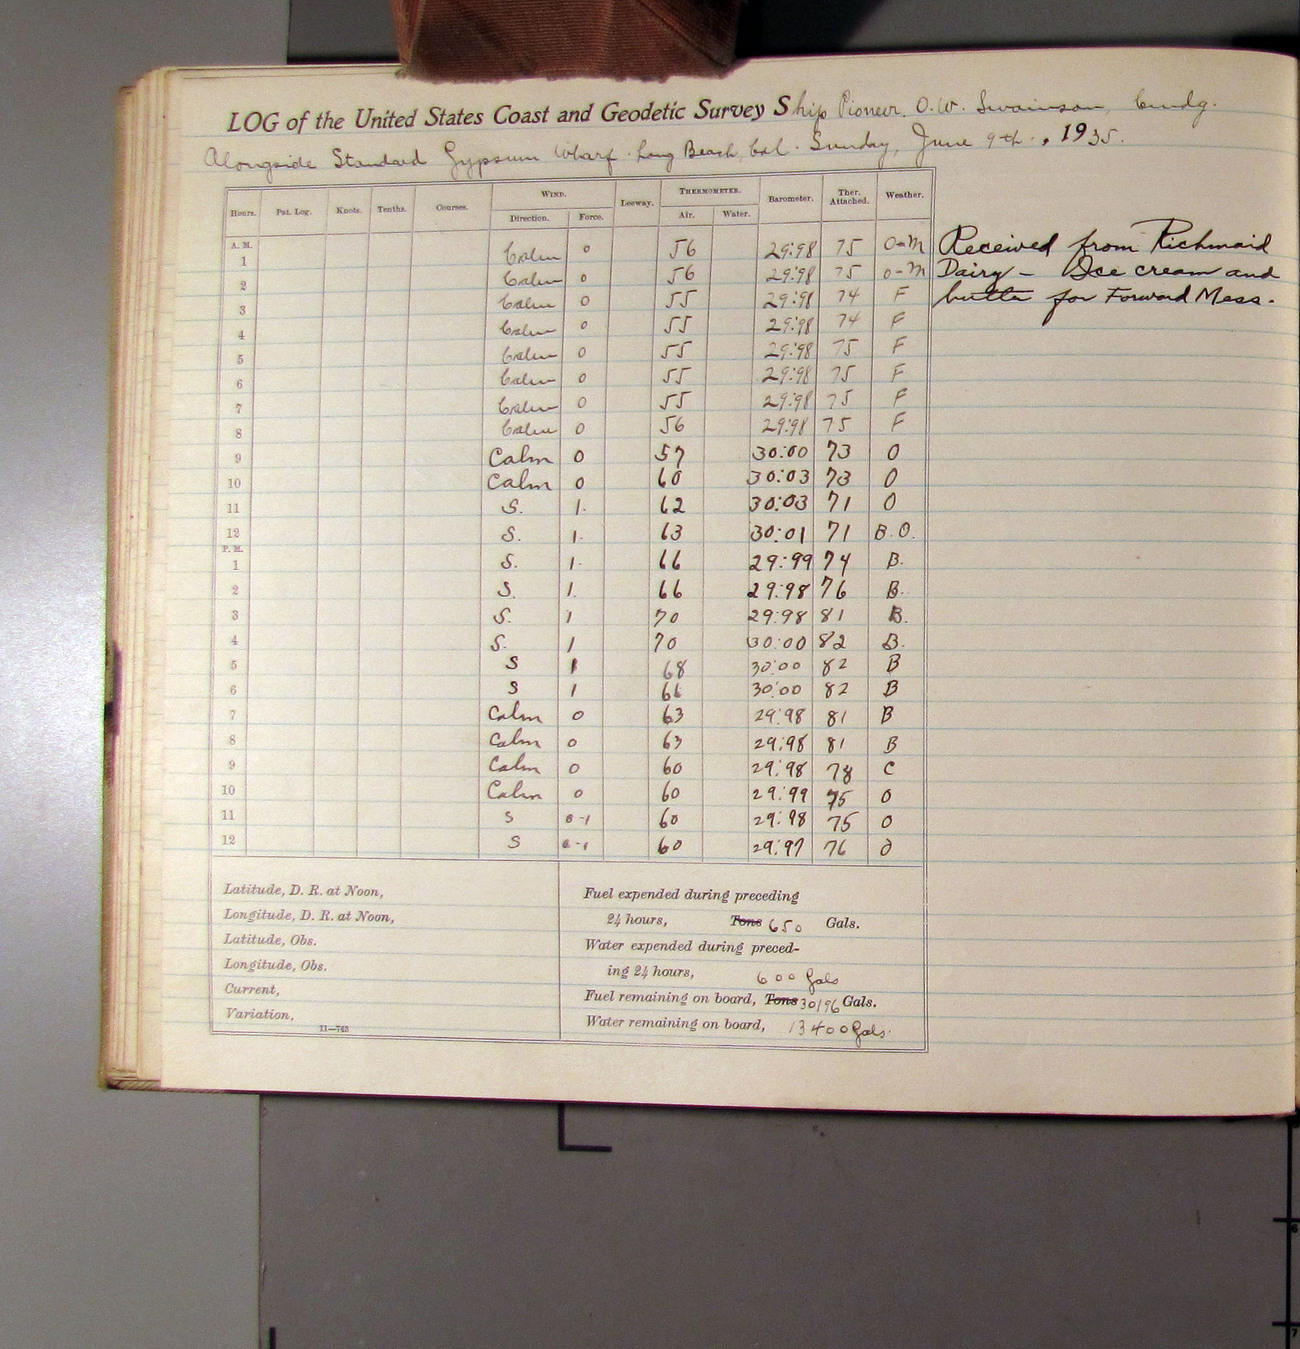 LOG of the United States Coast and Geodetic Survey Ship Pioneer. O.W. Swainson, Cmndg.
Alongside Standard Gypsum Wharf. Long Beach, Cal. Sunday, June 9th., 1935.
Hours. Pat. Log. Knots. Tenths. Courses. WIND. Leeway. THERMOMETER. Barometer. Ther. Attached. Weather.
Direction. Force. Air. Water.
A. M.
1 Calm 0 56 29:98 75 O-M
2 Calm 0 56 29:98 75 O-M
3 Calm 0 55 29:98 74 F
4 Calm 0 55 29:98 74 F
5 Calm 0 55 29:98 75 F
6 Calm 0 55 29:98 75 F
7 Calm 0 55 29:98 75 F
8 Calm 0 56 29:98 75 F
9 Calm 0 57 30:00 73 O
10 Calm 0 60 30:03 73 O
11 S. 1. 62 30:03 71 O
12 S. 1. 63 30:01 71 B.O.
P. M.
1 S. 1. 66 29:99 74 B.
2 S. 1. 66 29:98 76 B.
3 S. 1 70 29:98 81 B.
4 S. 1 70 30:00 82 B.
5 S 1 68 30:00 82 B
6 S 1 66 30:00 82 B
7 Calm 0 63 29:98 81 B
8 Calm 0 63 29:98 81 B
9 Calm 0 60 29:98 78 C
10 Calm 0 60 29:99 75 O
11 S 0-1 60 29:98 75 O
12 S 0-1 60 29:97 76 O
Received from Richmaid
Dairy - Ice cream and
butter for Forward Mess.
Latitude, D. R. at Noon,
Longitude, D. R. at Noon,
Latitude, Obs.
Longitude, Obs.
Current,
Variation,
11—763
Fuel expended during preceding
24 hours, Tons 650 Gals.
Water expended during preced-
ing 24 hours, 600 Gals
Fuel remaining on board, Tons 30196 Gals.
Water remaining on board, 13400 Gals.
6
7